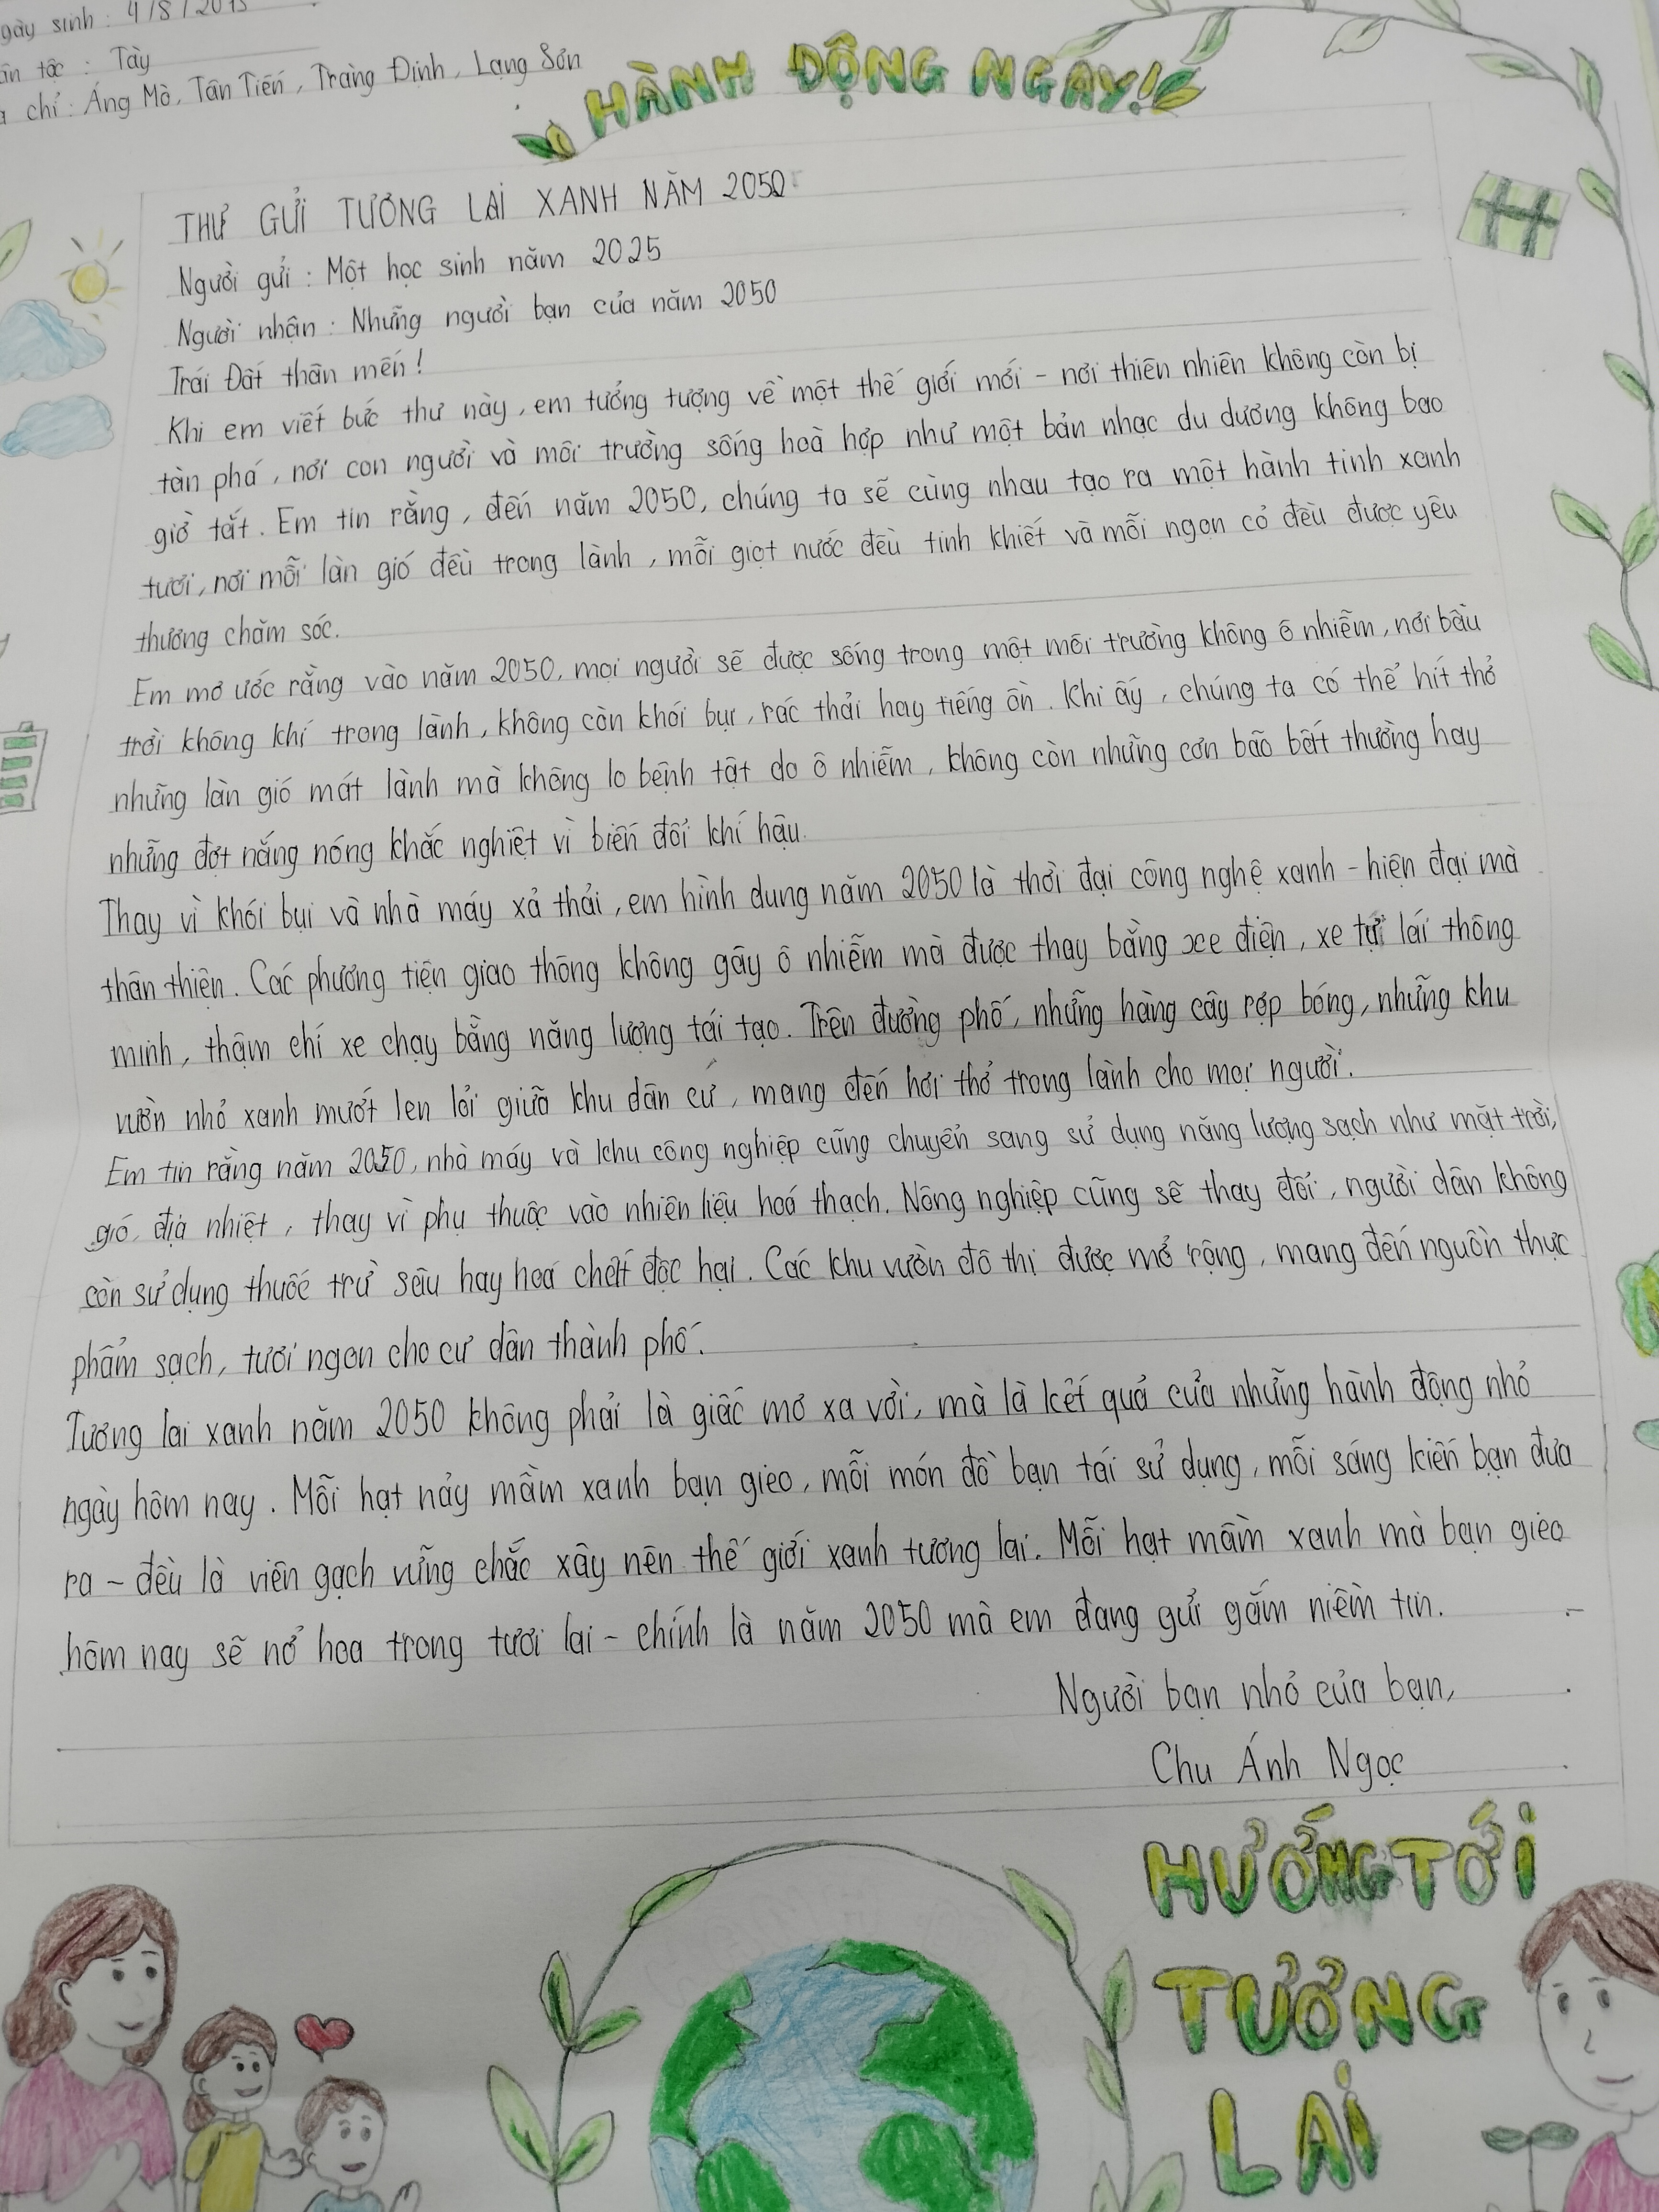 gày sinh : 4/8/2013
ân tộc : Tày
chỉ : Áng Mò, Tân Tiến, Tràng Định, Lạng Sơn
HÀNH ĐỘNG NGAY!
THƯ GỬI TƯƠNG LAI XANH NĂM 2050
Người gửi : Một học sinh năm 2025
Người nhận : Những người bạn của năm 2050
Trái Đất thân mến !
Khi em viết bức thư này, em tưởng tượng về một thế giới mới - nơi thiên nhiên không còn bị
tàn phá, nơi con người và môi trường sống hoà hợp như một bản nhạc du dương không bao
giờ tắt. Em tin rằng, đến năm 2050, chúng ta sẽ cùng nhau tạo ra một hành tinh xanh
tươi, nơi mỗi làn gió đều trong lành, mỗi giọt nước đều tinh khiết và mỗi ngọn cỏ đều được yêu
thương chăm sóc.
Em mơ ước rằng vào năm 2050, mọi người sẽ được sống trong một môi trường không ô nhiễm, nơi bầu
trời không khí trong lành, không còn khói bụi, rác thải hay tiếng ồn. Khi ấy, chúng ta có thể hít thở
những làn gió mát lành mà không lo bệnh tật do ô nhiễm, không còn những cơn bão bất thường hay
những đợt nắng nóng khắc nghiệt vì biến đổi khí hậu.
Thay vì khói bụi và nhà máy xả thải, em hình dung năm 2050 là thời đại công nghệ xanh - hiện đại mà
thân thiện. Các phương tiện giao thông không gây ô nhiễm mà được thay bằng xe điện, xe tự lái thông
minh, thậm chí xe chạy bằng năng lượng tái tạo. Trên đường phố, những hàng cây rợp bóng, những khu
vườn nhỏ xanh mướt len lỏi giữa khu dân cư, mang đến hơi thở trong lành cho mọi người.
Em tin rằng năm 2050, nhà máy và khu công nghiệp cũng chuyển sang sử dụng năng lượng sạch như mặt trời,
gió, địa nhiệt, thay vì phụ thuộc vào nhiên liệu hoá thạch. Nông nghiệp cũng sẽ thay đổi, người dân không
còn sử dụng thuốc trừ sâu hay hoá chất độc hại. Các khu vườn đô thị được mở rộng, mang đến nguồn thực
phẩm sạch, tươi ngon cho cư dân thành phố.
Tương lai xanh năm 2050 không phải là giấc mơ xa vời, mà là kết quả của những hành động nhỏ
ngày hôm nay. Mỗi hạt nảy mầm xanh bạn gieo, mỗi món đồ bạn tái sử dụng, mỗi sáng kiến bạn đưa
ra - đều là viên gạch vững chắc xây nên thế giới xanh tương lai. Mỗi hạt mầm xanh mà bạn gieo
hôm nay sẽ nở hoa trong tươi lai - chính là năm 2050 mà em đang gửi gắm niềm tin.
Người bạn nhỏ của bạn,
Chu Ánh Ngọc
HƯỚNG TỚI
TƯƠNG
LAI